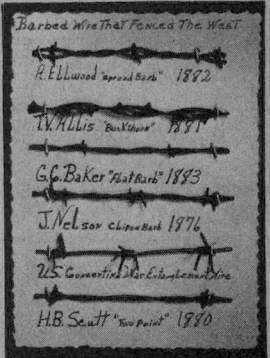 Barbed Wire That Fenced The West
A. Ellwood "Spread Barb" 1882
T.V. Allis "Buckthorn" 1881
G.C. Baker "Flat Barb" 1883
J. Nelson Clip on Barb 1876
U.S. Concertina War Entanglement Wire
H.B. Scutt "Two Point" 1880